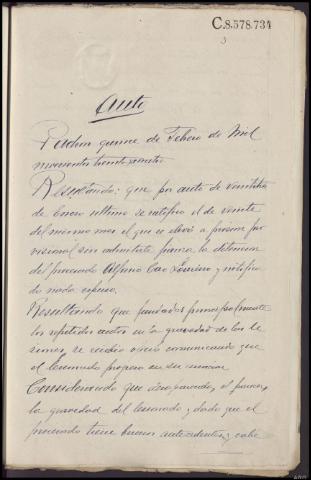 C.8.578.734
3
Auto
quince de Febrero de Mil
novecientos treinta y cuatro
Resultando: que por auto de veintitres
de Enero ultimo se ratifico el de veinte
del mismo mes el que se elevó a prision pro
visional sin admitirle fianza la detencion
del procesado Alfonso Cao y notifica
do nada expuso.
Resultando que fundados principalmente
los repetidos autos en la gravedad de las le
siones, se recibio oficio comunicando que
el lesionado en su
Considerando que desaparecida, al parecer,
la gravedad del lesionado y dado que el
procesado tiene buenos antecedentes, y cabe